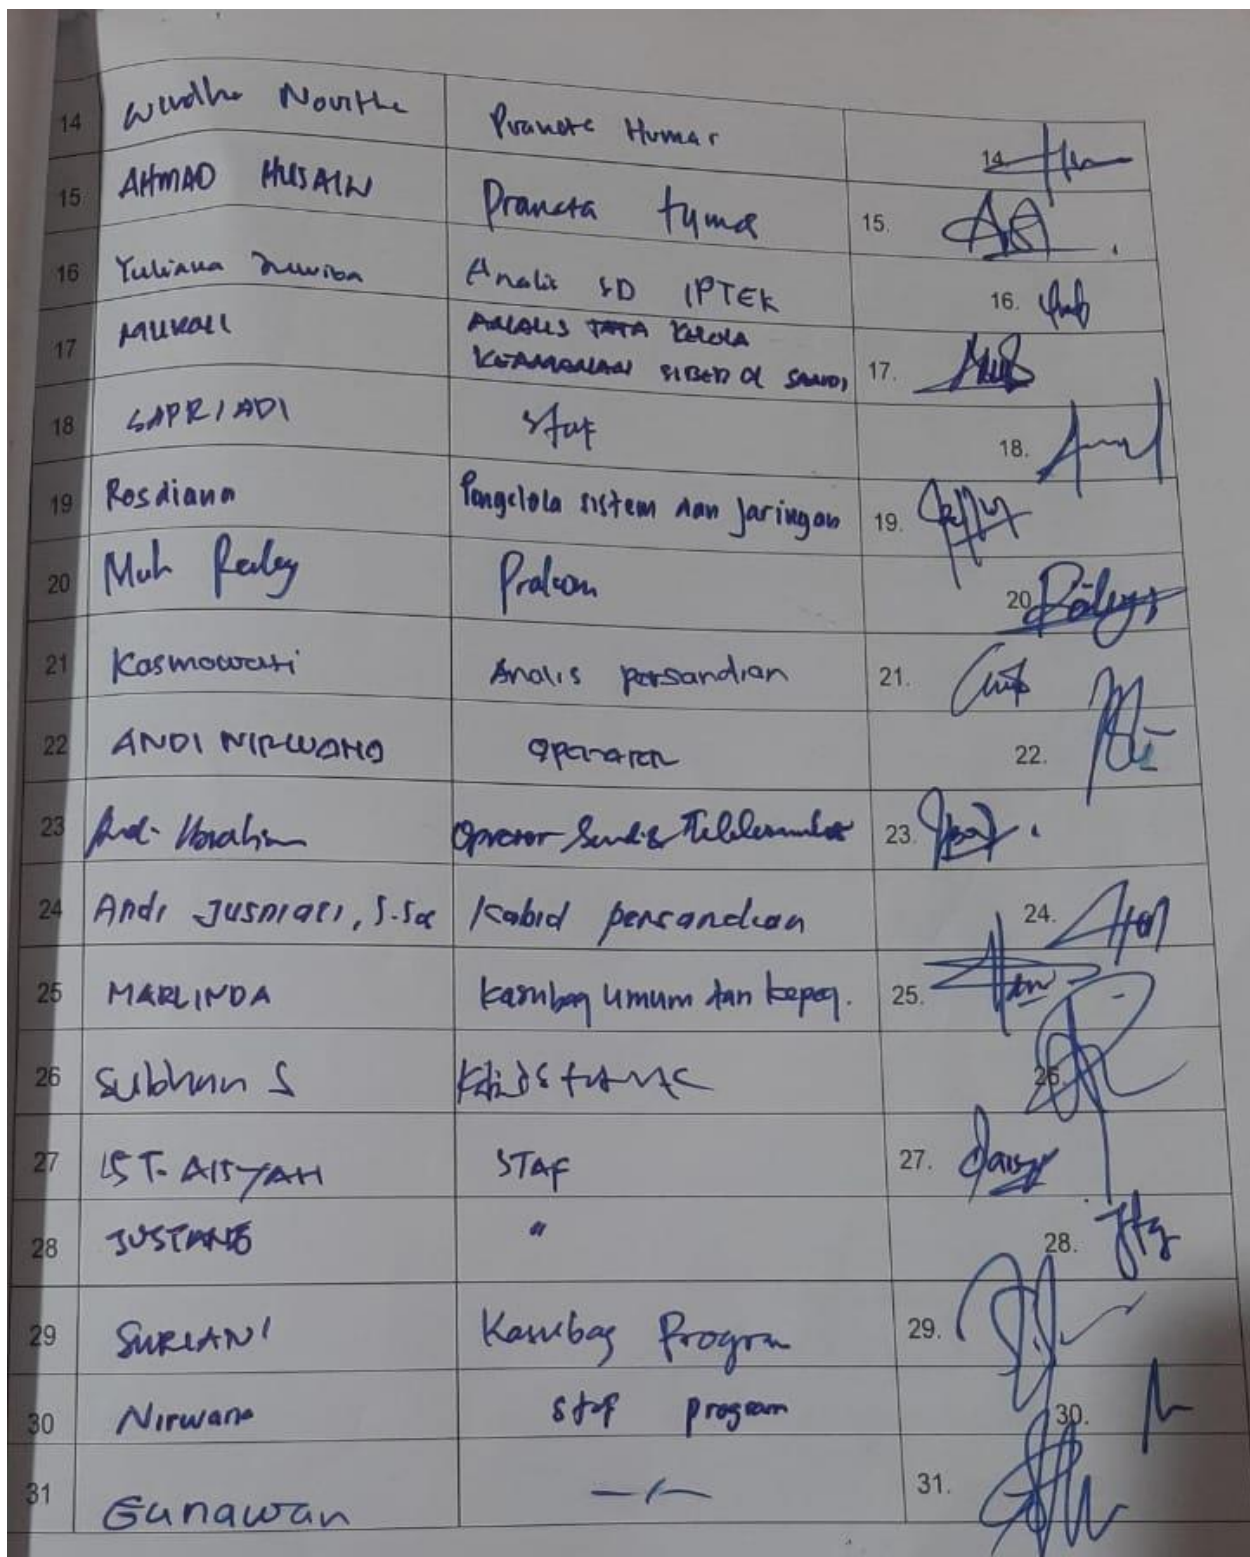 14 Novitha Pranata Humas 14.
15 AHMAD HUSAIN Pranata 15.
16 Yuliana Analis SD IPTEK 16.
17 MUKALI ANALIS TATA KELOLA
KEAMANAN SIBER & SANDI 17.
18 SAPRIADI Staf 18.
19 Rosdiana Pengelola sistem dan Jaringan 19.
20 Muh Prakom 20
21 Kasmawati Analis persandian 21.
22 ANDI NIRWANA OPERATOR 22.
23 Andi Ibrahim Operator Sandi & 23.
24 Andi Jusniati, S.Sos Kabid persandian 24.
25 MARLINDA Kasubag Umum dan kepeg. 25.
26 Subhan S 26.
27 ST. AISYAH STAF 27.
28 JUSTANG " 28.
29 SURIANI Kasubag Program 29.
30 Nirwana Staf program 30.
31 Gunawan 31.